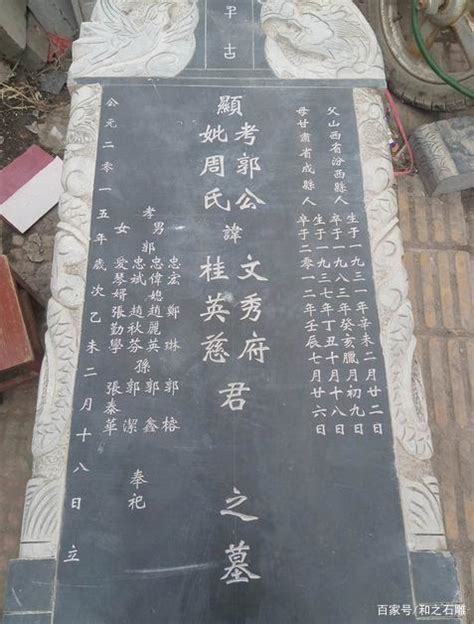 古
父山西省汾西縣人 生于一九三一年辛未二月廿二日
卒于一九八三年癸亥臘月初九日
母甘肅省成縣人 生于一九三七年丁丑十月十八日
卒于二〇一二年壬辰七月廿六日
顯
考郭公 諱 文秀府君之墓
妣周氏 桂英慈
忠宏 鄭琳 郭榕
孝男郭 忠偉媳趙麗英 孫 郭鑫
忠斌 趙秋芬 郭潔
女愛琴婿張勤學 張秦華 奉祀
公元二零一五年歲次乙未二月十八日立
百家号/和之石雕